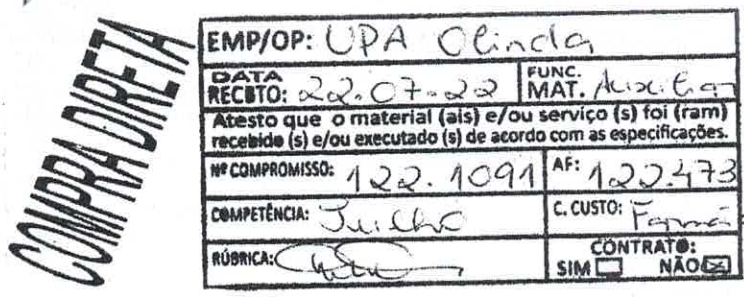 COMPRA DIRETA
EMP/OP: UPA Olinda
DATA RECBTO: 22.07.22
FUNC. MAT. Auxiliar
Atesto que o material (ais) e/ou serviço (s) foi (ram)
recebido (s) e/ou executado (s) de acordo com as especificações.
Nº COMPROMISSO: 122.1091 AF: 122.473
COMPETÊNCIA: Julho C. CUSTO:
RÚBRICA: CONTRATO:
SIM ☐ NÃO ☒